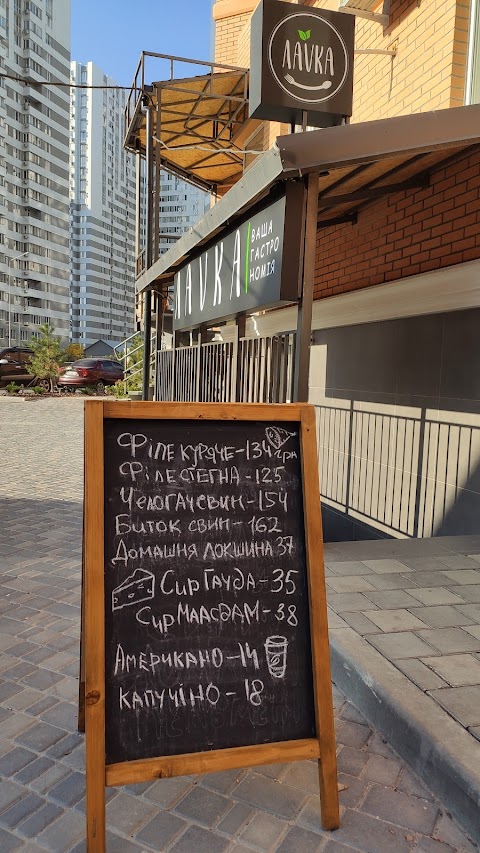 ЛАVКА
ЛАVКА
ВАША
ГАСТРО
НОМІЯ
ФІЛЕ КУРЯЧЕ-134 грн
ФІЛЕ СТЕГНА - 125
Челогач свин-154
Биток свин - 162
Домашня локшина 37
Сир Гауда - 35
Сир МААСДАМ - 38
Американо - 14
капучіно - 18